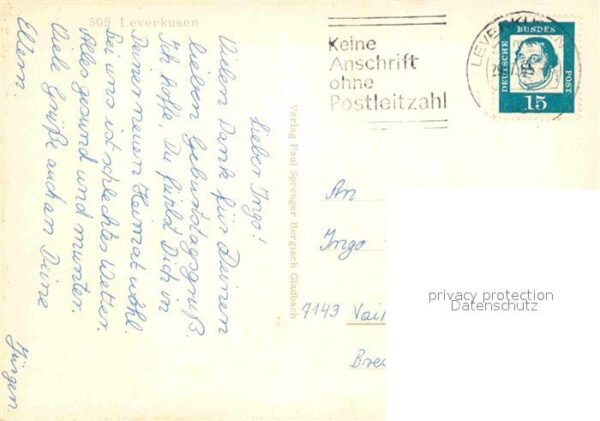 509 Leverkusen
Lieber Ingo!
Vielen Dank für Deinen
lieben Geburtstagsgruß.
Ich hoffe, Du fühlst Dich in
Deiner neuen Heimat wohl.
Bei uns ist schlechtes Wetter.
Alles gesund und munter.
Viele Grüße auch an Deine
Eltern.
Jürgen.
Verlag Paul Sprenger Bergisch Gladbach
Keine
Anschrift
ohne
Postleitzahl
LEVERKUSEN
DEUTSCHE BUNDES POST
15
An
Ingo
7143 Vaih
privacy protection
Datenschutz